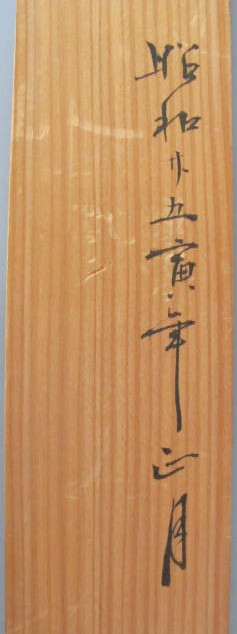 昭和廿五寅年正月